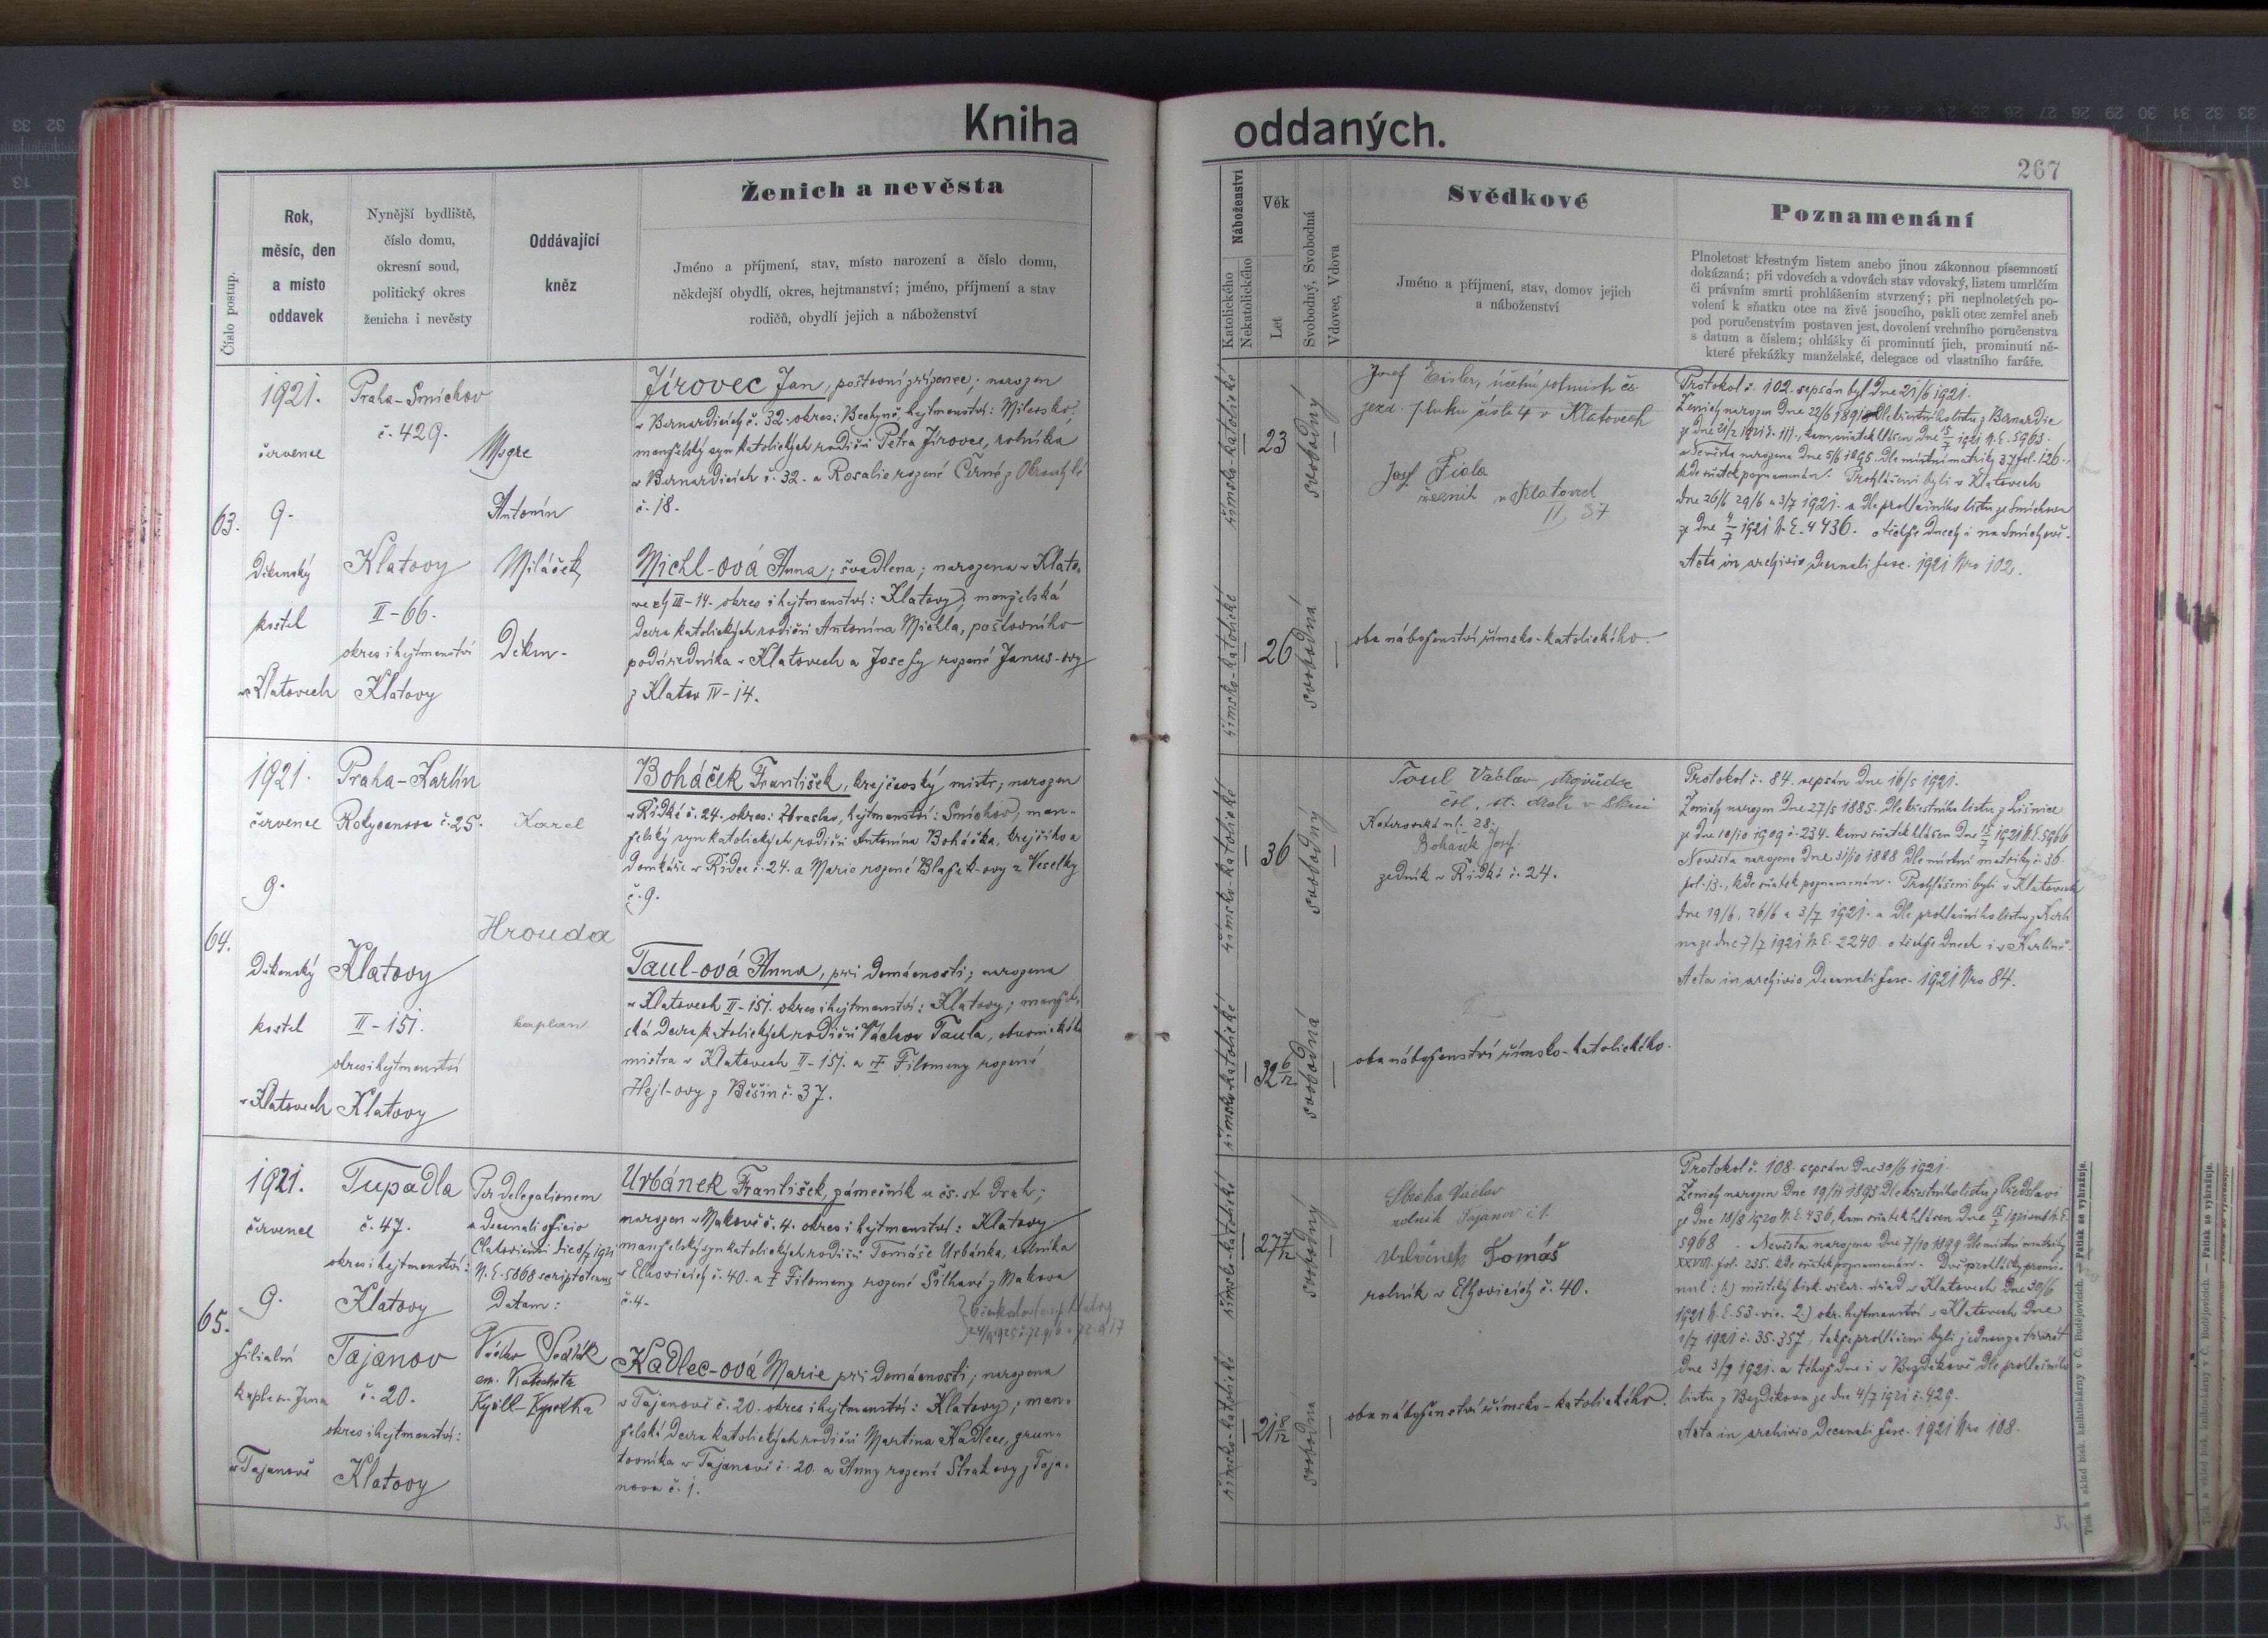 Kniha oddaných.
267
Číslo postup.
Rok,
měsíc, den
a místo
oddavek
Nynější bydliště,
číslo domu,
okresní soud,
politický okres
ženicha i nevěsty
Oddávající
kněz
Ženich a nevěsta
Jméno a příjmení, stav, místo narození a číslo domu,
někdejší obydlí, okres, hejtmanství; jméno, příjmení a stav
rodičů, obydlí jejich a náboženství
Náboženství
Katolického
Nekatolického
Věk
Let
Svobodný, Svobodná
Vdovec, Vdova
Svědkové
Jméno a příjmení, stav, domov jejich
a náboženství
Poznamenání
Plnoletost křestným listem anebo jinou zákonnou písemností
dokázaná; při vdovcích a vdovách stav vdovský, listem umrlčím
či právním smrti prohlášením stvrzený; při neplnoletých po-
volení k sňatku otce na živě jsoucího, pakli otec zemřel aneb
pod poručenstvím postaven jest, dovolení vrchního poručenstva
s datum a číslem; ohlášky či prominutí jich, prominutí ně-
které překážky manželské, delegace od vlastního faráře.
63.
1921.
července
9.
Děkanský
kostel
v Klatovech
Praha-Smíchov
č. 429.
Klatovy
II-66.
okres i hejtmanství
Klatovy
Msgre
Antonín
Miláček
Děkan-
Jírovec Jan, poštovní zřízenec; narozen
v Bernardicích č. 32. okres: Bechyně, hejtmanství: Milevsko,
manželský syn katolických rodičů Petra Jírovce, rolníka
v Bernardicích č. 32. a Rosalie rozené Černé z
č. 18.
Michl-ová Anna; švadlena; narozena v Klato-
vech III-14. okres i hejtmanství: Klatovy; manželská
dcera katolických rodičů Antonína Michla, poštovního
podúředníka v Klatovech a Josefy rozené Janus-ovy
z Klatov IV-14.
římsko-katolické
23
svobodný
římsko-katolické
26
svobodná
Josef Eisler, účetní rotmistr čs.
jezd. pluku čísla 4 v Klatovech
Josef Fiala
řezník v Klatovech
II, 37
oba náboženství římsko-katolického.
Protokol č. 102. sepsán byl dne 21/6 1921.
Ženich narozen dne 22/6 1898 dle křestního listu z Bernardic
ze dne 21/2 1921 č. 111., kam sňatek hlášen dne 15/7 1921 N. E. 5963.
Nevěsta narozena dne 5/6 1895. dle místní matriky 37 fol. 126.,
kde sňatek poznamenán. Prohlášeni byli v Klatovech
dne 26/6 29/6 a 3/7 1921. a dle prohlašního listu ze Smíchova
ze dne 4/7 1921 N. E. 4436. o těchže dnech i na Smíchově.
Acta in archivio decanali fasc. 1921 Nro 102.
64.
1921.
července
9.
Děkanský
kostel
v Klatovech
Praha-Karlín
Rokycanova č. 25.
Klatovy
II-151.
okres i hejtmanství
Klatovy
Karel
Hrouda
kaplan
Boháček František, krejčovský mistr; narozen
v Řídké č. 24. okres: Zbraslav, hejtmanství: Smíchov, man-
želský syn katolických rodičů Antonína Boháčka, krejčího a
domkáře v Řídce č. 24. a Marie rozené Blažek-ovy z Veselky
č. 9.
Taul-ová Anna, při domácnosti; narozena
v Klatovech II-151. okres i hejtmanství: Klatovy; manžel-
ská dcera katolických rodičů Václava Taula, obuvnického
mistra v Klatovech II-151. a Filomeny rozené
Hejl-ovy z Běšin č. 37.
římsko-katolické
36
svobodný
římsko-katolické
32 6/12
svobodná
Toul Václav
čsl. st. drah v Plzni
28
Boháček Josef
zedník v Řídké č. 24.
oba náboženství římsko-katolického.
Protokol č. 84. sepsán dne 16/5 1921.
Ženich narozen dne 27/5 1885. dle křestního listu z Líšnice
ze dne 10/10 1909 č. 234. kam sňatek hlášen dne 15/7 1921 N. E. 5966
Nevěsta narozena dne 31/10 1888 dle místní matriky č. 36.
fol. 13., kde sňatek poznamenán. Prohlášeni byli v Klatovech
dne 19/6, 26/6 a 3/7 1921. a dle prohlašního listu z Karlí-
na ze dne 7/7 1921 N. E. 2240 o těchže dnech i v Karlíně.
Acta in archivio decanali fasc. 1921 Nro 84.
65.
1921.
července
9.
filialní
kaple sv. Jana
v Tajanově
Tupadla
č. 47.
okres i hejtmanství:
Klatovy
Tajanov
č. 20.
okres i hejtmanství:
Klatovy
Per delegationem
a decanali officio
N. E. 5868 scripto
datam:
em. Katecheta
Urbánek František, zámečník u čs. st. drah;
narozen v Makově č. 4. okres i hejtmanství: Klatovy
manželský syn katolických rodičů Tomáše Urbánka, rolníka
v Elhovicích č. 40. a Filomeny rozené Šilhavé z Makova
č. 4.
Kadlec-ová Marie při domácnosti; narozena
v Tajanově č. 20. okres i hejtmanství: Klatovy; man-
želská dcera katolických rodičů Martina Kadlece, grun-
tovníka v Tajanově č. 20. a Anny rozené Strakovy z Taja-
nova č. 1.
římsko-katolické
27 7/12
svobodný
římsko-katolické
21 8/12
svobodná
Straka Václav
rolník Tajanov č. 1.
Urbánek Tomáš
rolník v Elhovicích č. 40.
oba náboženství římsko-katolického.
Protokol č. 108. sepsán dne 30/6 1921.
Ženich narozen dne 19/11 1893 dle křestního listu z Předslavi
ze dne 18/8 1920 N. E. 436, kam sňatek hlášen dne 15/7 1921 sub N. E.
5968. Nevěsta narozena dne 7/10 1899 dle místní matriky
XXVIII. fol. 235. kde sňatek poznamenán. Dvě prohlášky promi-
nul: 1.) měštský bisk. vikar. úřad v Klatovech dne 30/6
1921 N. E. 53-vic. 2.) okr. hejtmanství v Klatovech dne
1/7 1921 č. 35.357, takže prohlášeni byli jednou za třikrát
dne 3/7 1921. a téhož dne i v Bezděkově dle prohlašního
listu z Bezděkova ze dne 4/7 1921 č. 429.
Acta in archivio decanali fasc. 1921 Nro 108.
Tisk a sklad bisk. knihtiskárny v Č. Budějovicích. — Patisk se vyhražuje.